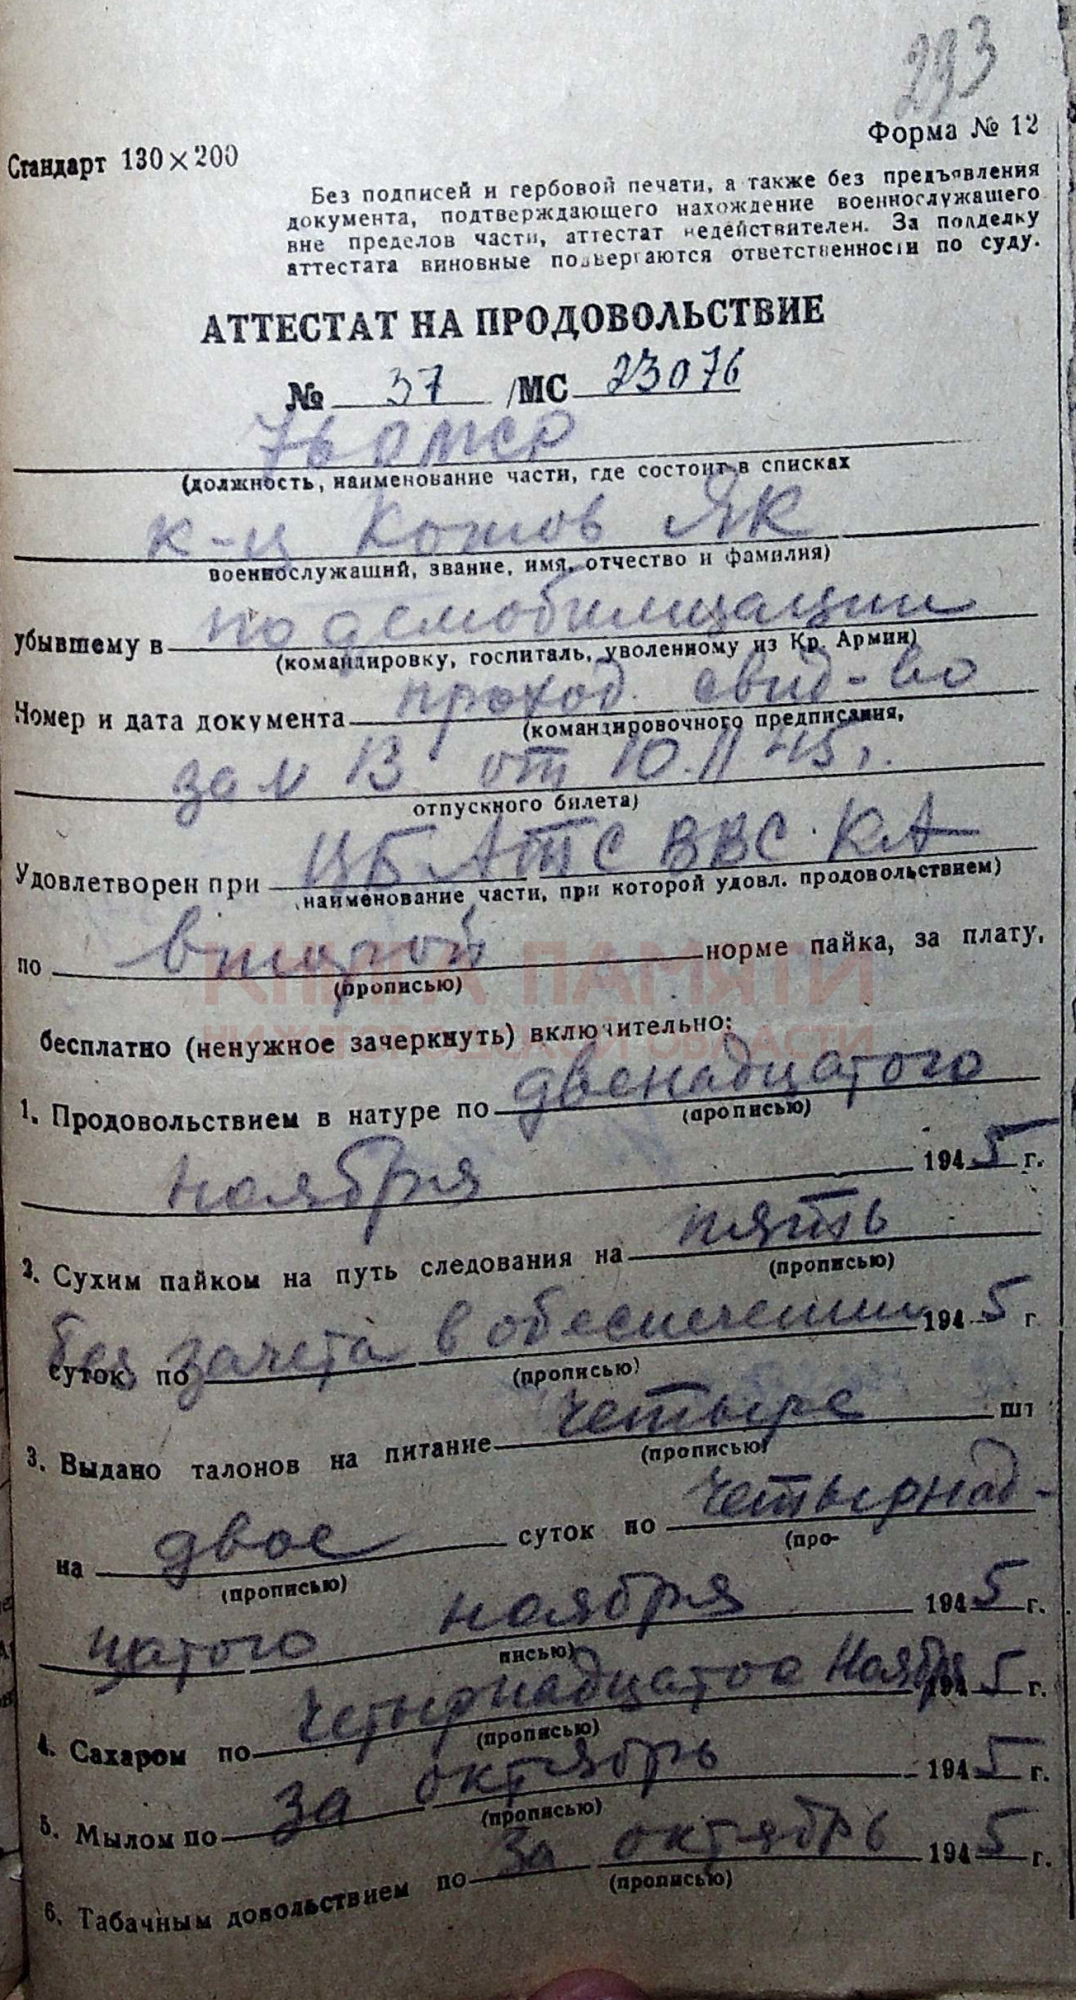 293
Форма № 12
Стандарт 130×200
Без подписей и гербовой печати, а также без предъявления
документа, подтверждающего нахождение военнослужащего
вне пределов части, аттестат недействителен. За подделку
аттестата виновные подвергаются ответственности по суду.
АТТЕСТАТ НА ПРОДОВОЛЬСТВИЕ
№ 37 /МС 23076
76 ОМСР
(должность, наименование части, где состоит в списках
к-ц Котов ЯК
военнослужащий, звание, имя, отчество и фамилия)
убывшему в по демобилизации
(командировку, госпиталь, уволенному из Кр. Армии)
Номер и дата документа проход. свид-во
(командировочного предписания,
за № 13 от 10.11 45 г.
отпускного билета)
Удовлетворен при ЦБ АТС ВВС КА
(наименование части, при которой удовл. продовольствием)
по второй норме пайка, за плату,
(прописью)
КНИГА ПАМЯТИ
НИЖЕГОРОДСКОЙ ОБЛАСТИ
бесплатно (ненужное зачеркнуть) включительно:
1. Продовольствием в натуре по двенадцатого
(прописью)
ноября 1945 г.
2. Сухим пайком на путь следования на пять
(прописью)
суток по без зачета в обеспечении 1945 г
(прописью)
3. Выдано талонов на питание четыре шт
(прописью)
на двое суток по четырнад-
(прописью) (про-
цатого ноября 1945 г.
писью)
4. Сахаром по четырнадцатое Ноября 1945 г.
(прописью)
5. Мылом по за октябрь 1945 г.
(прописью)
6. Табачным довольствием по за октябрь 1945 г.
(прописью)